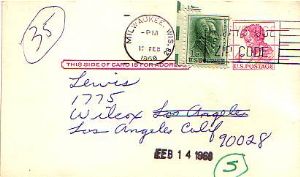 35
MILWAUKEE, WIS.
PM
FEB
1968
ZIP CODE
U.S. POSTAGE
THIS SIDE OF CARD IS FOR ADDRESS
Lewis
1775
Wilcox Los Angeles
Los Angeles Calif
90028
FEB 14 1968
5